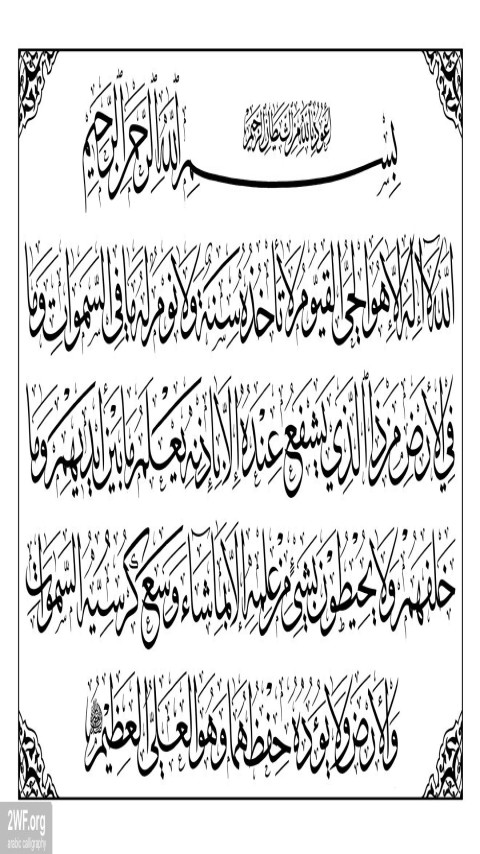 أعوذ بالله من الشيطان الرجيم
بسم الله الرحمن الرحيم
الله لا إله إلا هو الحي القيوم لا تأخذه سنة ولا نوم له ما في السموات وما
في الأرض من ذا الذي يشفع عنده إلا بإذنه يعلم ما بين أيديهم وما
خلفهم ولا يحيطون بشيء من علمه إلا بما شاء وسع كرسيه السموات
والأرض ولا يؤده حفظهما وهو العلي العظيم
2WF.org
arabic calligraphy